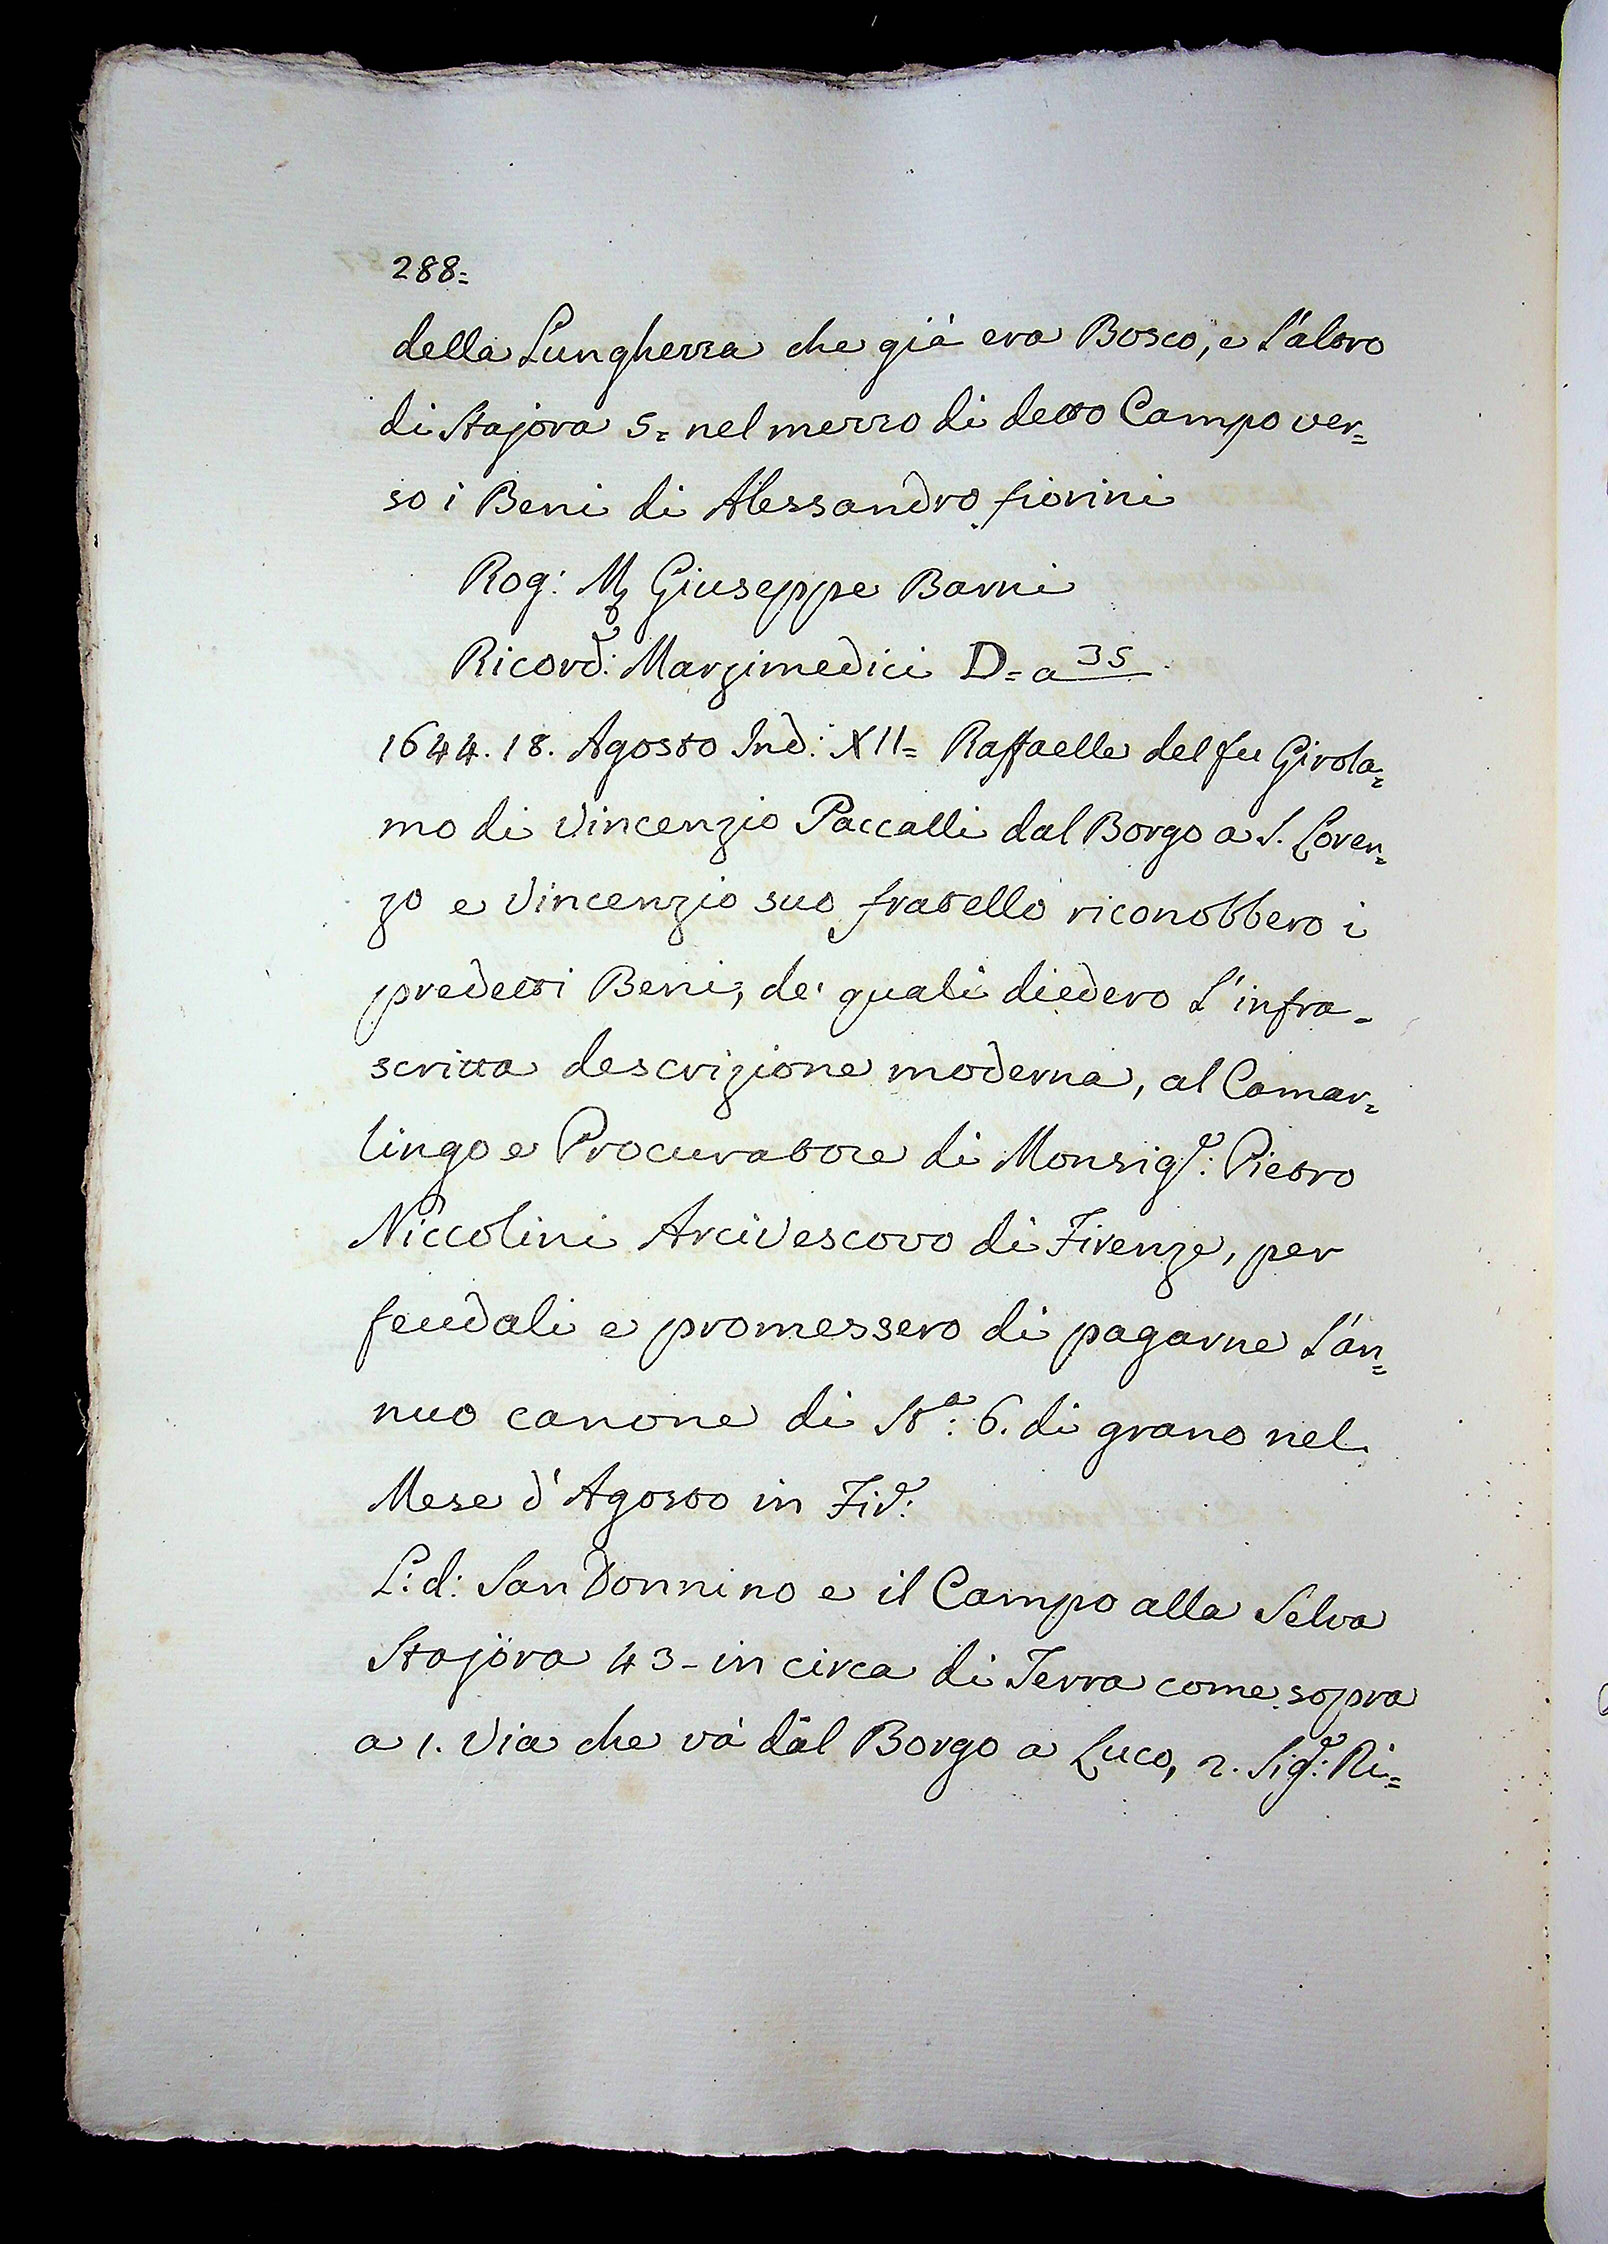 288=
della Lunghezza che già era Bosco, e l'altro
di Stajora 5= nel mezzo di detto Campo ver=
so i Beni di Alessandro fiorini
Rog: M Giuseppe Barni
Ricord: Marzimedici D= a 35
1644. 18. Agosto Ind: XII= Raffaelle del fu Girola=
mo di Vincenzio Paccalli dal Borgo a S. Loren=
zo e Vincenzio suo fratello riconobbero i
predetti Beni, de' quali diedero l'infra-
scritta descrizione moderna, al Camar=
lingo e Procuratore di Monsig.r: Pietro
Niccolini Arcivescovo di Firenze, per
feudali e promessero di pagarne l'an=
nuo canone di St.a: 6. di grano nel
Mese d'Agosto in Fir.e:
L: d: San Donnino e il Campo alla Selva
Stajora 43- in circa di Terra come sopra
a 1. Via che và dal Borgo a Luco, 2. Sig.r: Ri=